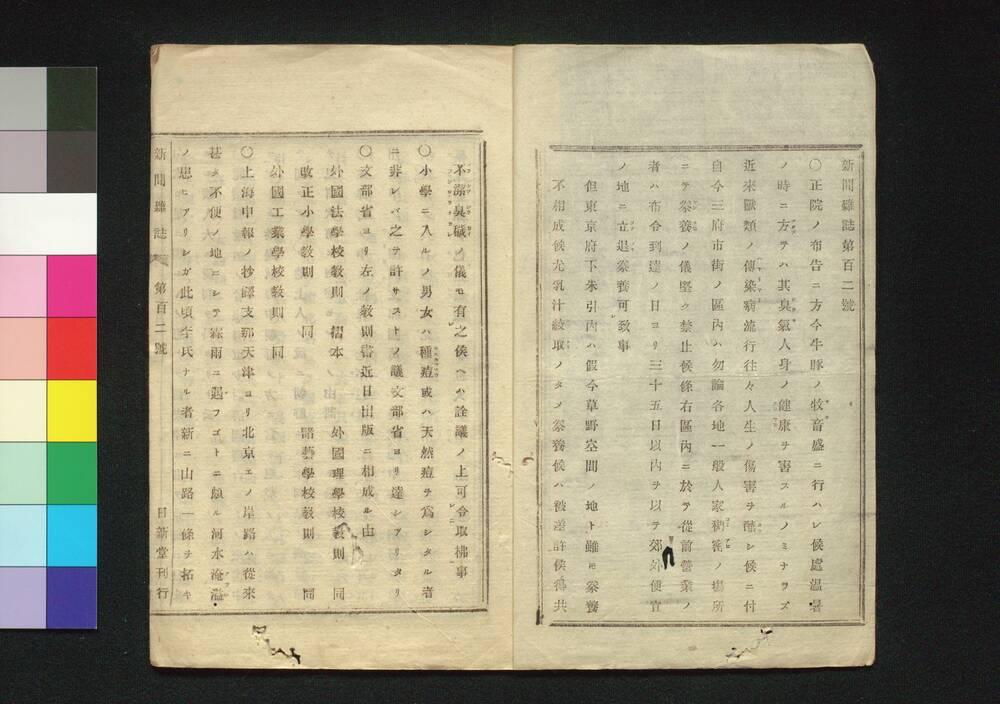 新聞雜誌第百二號
〇正院ノ布告ニ方今牛豚ノ牧畜盛ニ行ハレ候處溫暑
ノ時ニ方テハ其臭氣人身ノ健康ヲ害スルノミナラズ
近來獸類ノ傳染病流行往々人生ノ傷害ヲ釀シ候ニ付
自今三府市街ノ區內ハ勿論各地一般人家稠密ノ場所
ニテ豢養ノ儀堅ク禁止候條右區內ニ於テ從前營業ノ
者ハ布令到達ノ日ヨリ三十五日以內ヲ以テ郊外便宜
ノ地ニ立退豢養可致事
但東京府下朱引內ハ假令草野空閒ノ地ト雖モ豢養
不相成候尤乳汁絞取ノタメ豢養候ハ被差許候得共
不潔臭穢ノ儀モ有之候ヘハ詮議ノ上可令取拂事
〇小學ニ入ルノ男女ハ種痘或ハ天然痘ヲ爲シタル者
ニ非レバ之ヲ許サストノ議文部省ヨリ達シアリタリ
〇文部省ヨリ左ノ敎則書近日出版ニ相成ル由
外國法學校敎則 摺本 外國理學校敎則 同
改正小學敎則 同 諸藝學校敎則 同
外國工業學校敎則 同
〇上海申報ノ抄譯支那天津ヨリ北京エノ岸路ハ從來
甚タ不便ノ地ニシテ霖雨ニ遇フゴトニ頗ル河水淹溢
ノ患ヒアリシガ此頃李氏ナル者新ニ山路一條ヲ拓キ
新聞雜誌 第百二號 日新堂刊行